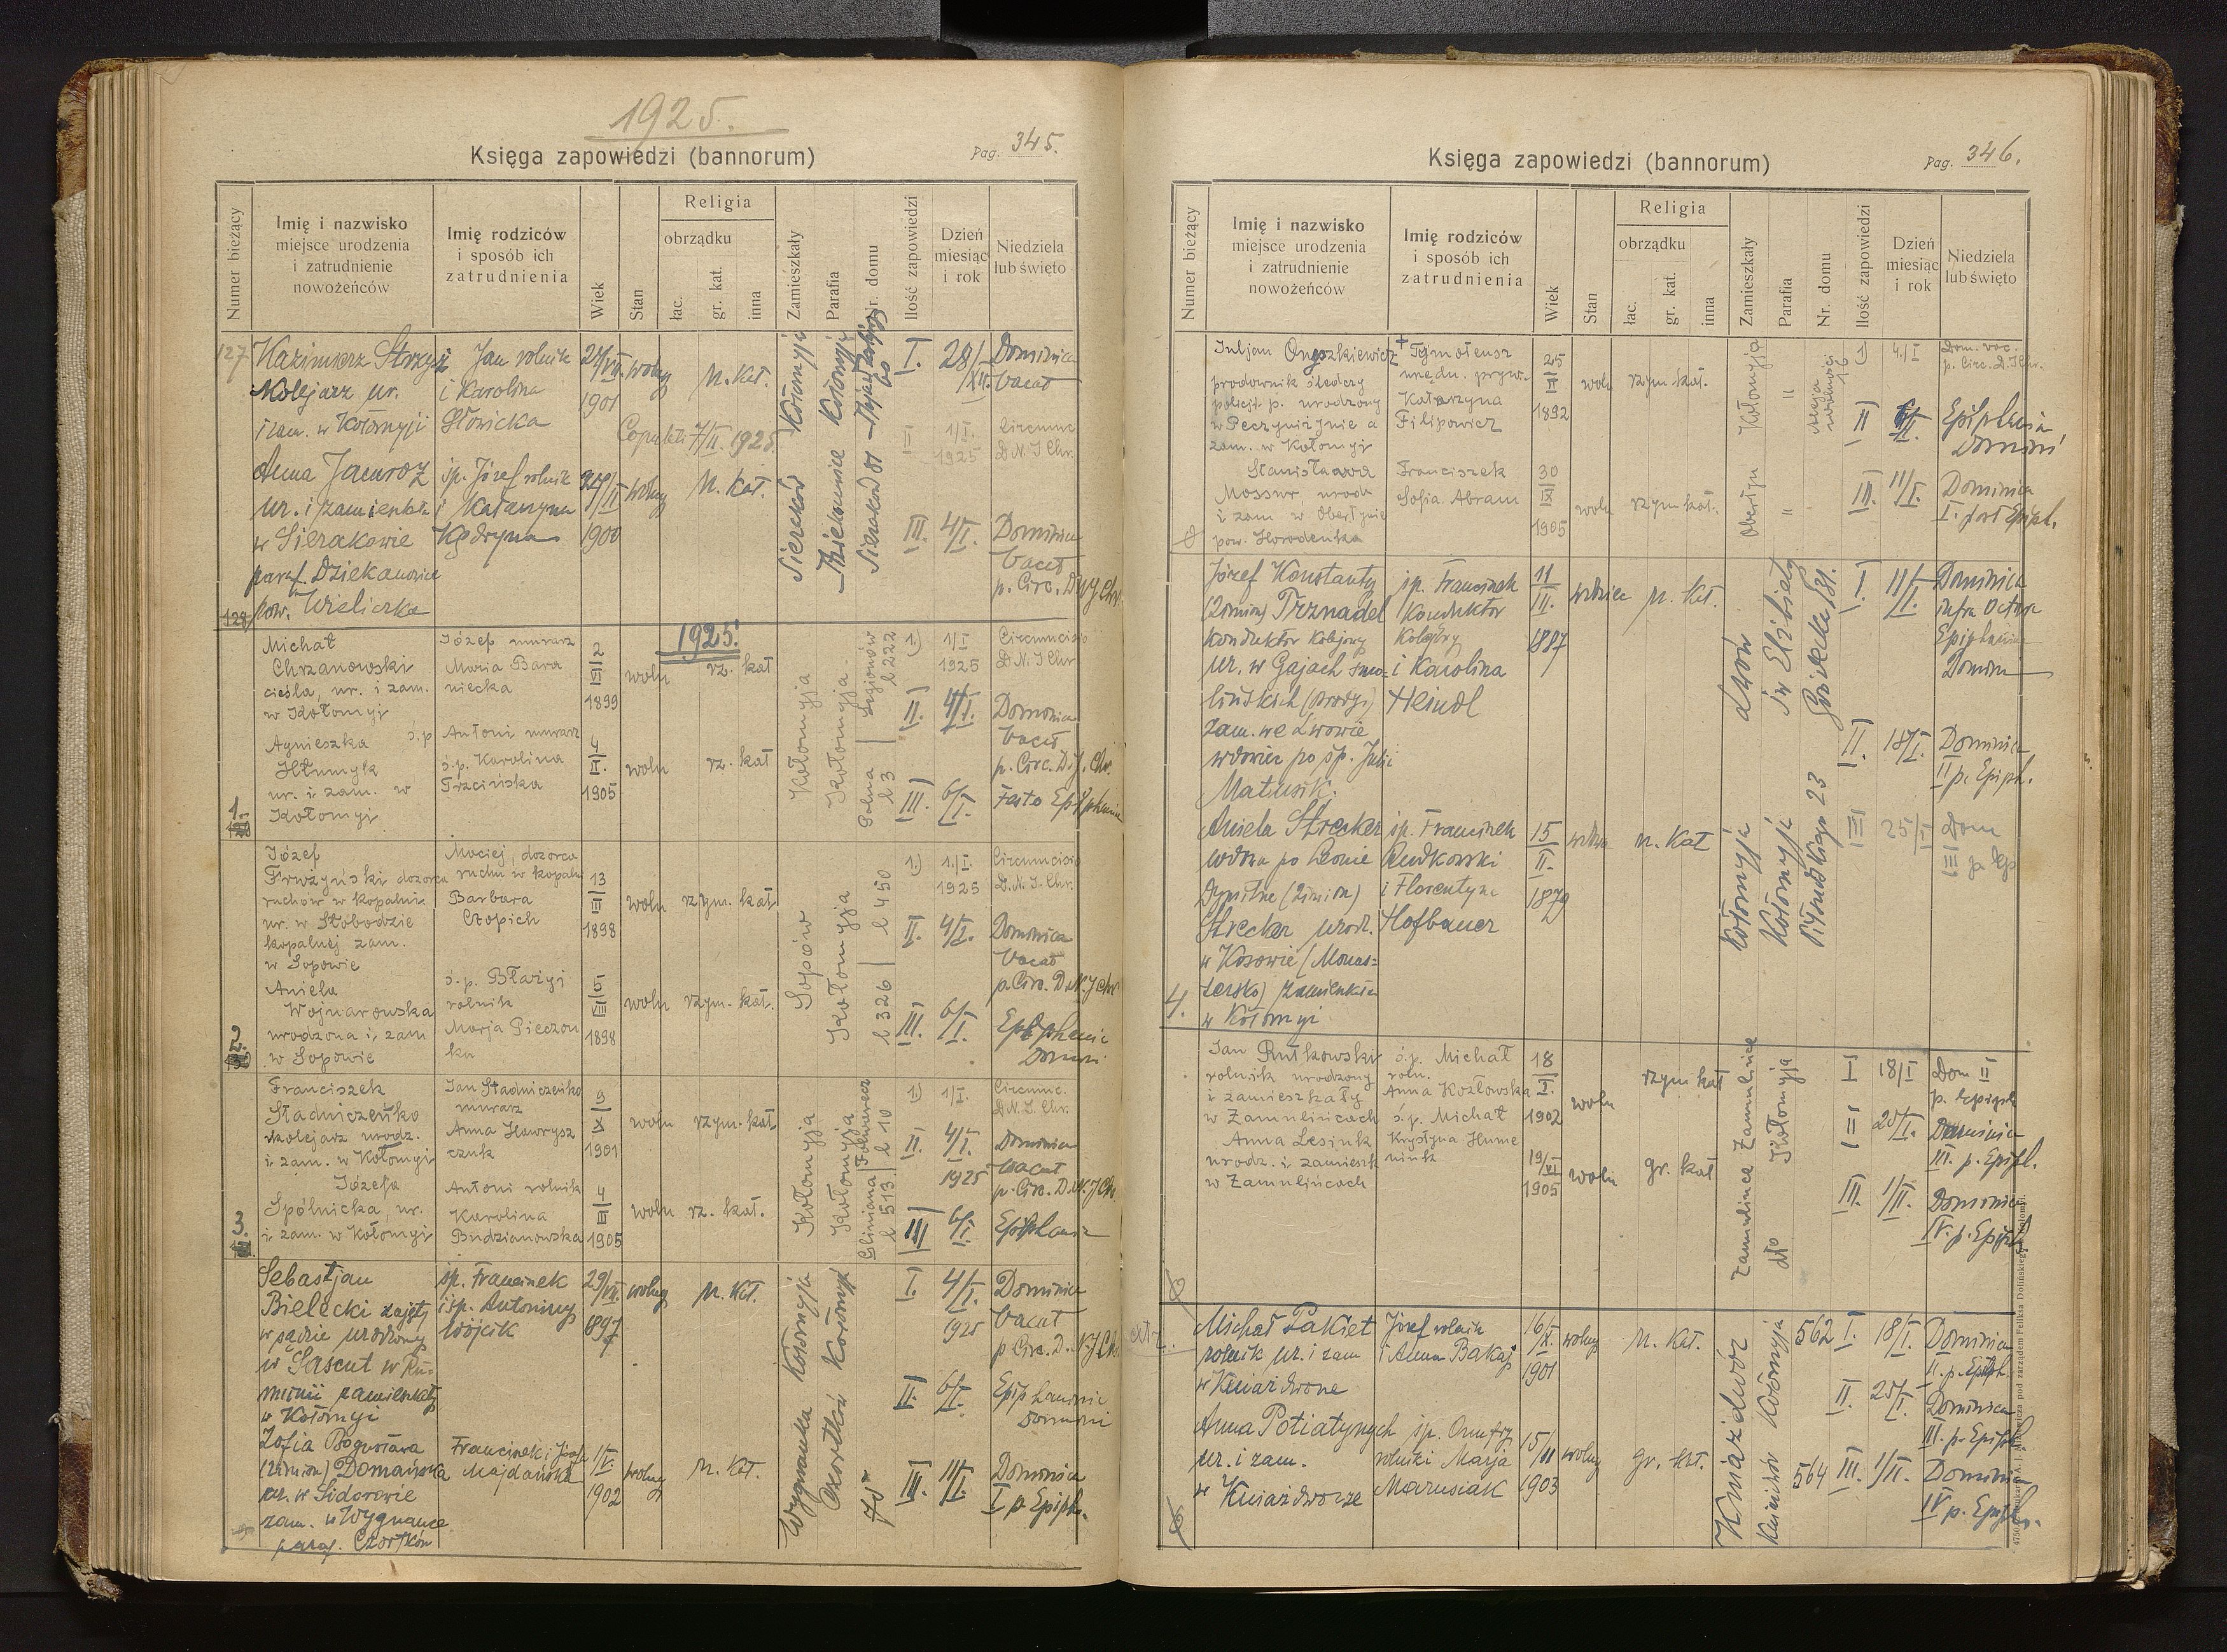 1925.
Księga zapowiedzi (bannorum)
Pag. 345.
Numer bieżący
Imię i nazwisko
miejsce urodzenia
i zatrudnienie
nowożeńców
Imię rodziców
i sposób ich
zatrudnienia
Wiek
Stan
Religia
obrządku
łac.
gr. kat.
inna
Zamieszkały
Parafia
Nr. domu
Ilość zapowiedzi
Dzień
miesiąc
i rok
Niedziela
lub święto
127
Kazimierz
Kolejarz ur.
i zam. w Kołomyji
Jan rolnik
i Karolina
Słowicka
1901
wolny
Kołomyja
I. 28/XII. Dominica
Vacat
Copulati 7/II. 1925.
II 1/I. 1925 Circumc.
D.N.J Chr.
Anna
ur. i zamieszk.
w Sierakowie
paraf. Dziekanowice
pow. Wieliczka
śp. Józef rolnik
i Katarzyna
Kędryna
1900
wolny
Sieraków
Dziekanowice
III. 4/I. Dominica
Vacat
128
1925.
Michał
Chrzanowski
cieśla, ur. i zam.
w Kołomyi
Józef murarz
Maria Bara
niecka
2
III
1899
woln
rz. kat
Kołomyja
Kołomyja
Legionów
l 222
1) 1/I 1925 Circumcisio
D.N.J Chr
II. 4/I. Dominica
Vacat
p. Circ. D.J. Chr.
III. 6/I. Festo Epiphania
Agnieszka
Hłumyk
ur. i zam. w
Kołomyi
ś.p. Antoni murarz
ś.p. Karolina
Trzcińska
4
1905
woln
rz. kat
Polna
l 3
1.
Józef
ruchów w kopalni
ur. w Słobodzie
kopalnej zam.
w Sopowie
Maciej, dozorca
ruchu w kopaln
Barbara
Czopich
13
III
1898
woln
rzym. kat
Sopów
Kołomyja
l 450
1.) 1/I. 1925 Circumcisio
D.N.J. Chr.
II. 4/I. Dominica
Vacat
Aniela
Wojnarowska
urodzona i zam
w Sopowie
ś.p. Błażyj
rolnik
Marja Pieczon
ka
1898
woln
rzym. kat.
l 326
III. 6/I. Epiphania
Domini
2.
Franciszek
Stadniczeńko
kolejarz urodz.
i zam. w Kołomyi
Jan Stadniczeńko
murarz
Anna Hawrysz
czuk
9
IX
1901
woln
rzym. kat
Kołomyja
Kołomyja
Folwarecz
l 10
1) 1/I. Circumc.
D.N.J. Chr.
II. 4/I. 1925 Dominica
vacat
Józefa
Spólnicka, ur.
i zam. w Kołomyi
Antoni rolnik
Karolina
Budzianowska
4
III
1905
woln
rz. kat.
Gliniana
l 513
III 6/I. Epiphania
3.
Sebastjan
Bielecki zajęty
w sądzie urodzony
w Sascut w Ru-
munii zamieszkały
w Kołomyi
śp. Franciszek
i śp. Antoniny
Wójcik
29/VII.
1897
wolny
rz. kat.
Kołomyja
Kołomyja
I. 4/I. 1925 Dominica
Vacat
II. 6/I. Epiphaniae
Domini
Zofia Bogusława
(2 imion) Domańska
ur. w Sidorowie
zam. w Wygnance
paraf. Czortków
Franciszek i Józefa
Majdańska
1/V.
1902
wolny
rz. kat.
Wygnanka
Czortków
III. 11/I. Dominica
I p Epiph.
Księga zapowiedzi (bannorum)
Pag. 346.
Numer bieżący
Imię i nazwisko
miejsce urodzenia
i zatrudnienie
nowożeńców
Imię rodziców
i sposób ich
zatrudnienia
Wiek
Stan
Religia
obrządku
łac.
gr. kat.
inna
Zamieszkały
Parafia
Nr. domu
Ilość zapowiedzi
Dzień
miesiąc
i rok
Niedziela
lub święto
Juljan
przodownik śledczy
policji p. urodzony
w Peczyniżynie a
zam. w Kołomyi
urzędn. pryw.
Katarzyna
Filipowicz
25
III
1892
woln
rzym kat.
Kołomyja
"
Aleja
wolności
16
1) 4./I Dom. vac.
p. Circ. D.J Chr.
II 6/I. Epiphania
Domini
Stanisława
Mossur, urodz
i zam w Obertynie
pow. Horodenka
Franciszek
Sofia Abram
30
IX
1905
woln
rzym kat.
Obertyn
"
III. 11/I. Dominica
I. post Epiph.
Józef Konstanty
(2 imion) Trznadel
konduktor kolejowy
ur. w Gajach smo-
leńskich (Brody)
zam. we Lwowie
wdowiec po śp. Julii
Matusik.
śp. Franciszek
konduktor
kolejowy
i Karolina
Heindl
11
III.
1887
wdowiec
rz. kat.
Lwów
św Elżbiety
I. 11/I. Dominica
infra Octav
Epiphaniae
Domini
II. 18/I. Dominica
II p. Epiph.
Aniela Strecker
wdowa po Leonie
(2 imion)
Strecker urodz.
w Kosowie
zamieszkała
w Kołomyi
śp. Franciszek
Rudkowski
i Florentyna
Hofbauer
15
II.
1879
wdowa
rz. kat
Kołomyja
Kołomyja
Piłsudskiego 23
III 25/I Dom
III p Ep
4.
Jan Rutkowski
rolnik urodzony
i zamieszkały
w Zamulińcach
ś.p. Michał
roln.
Anna Kozłowska
18
1902
woln
rzym kat
Zamulińce
Kołomyja
I 18/I Dom II
p. Epiph
II 25/I. Dominica
III. p. Epiph.
Anna Lesiuk
urodz. i zamieszk
w Zamulińcach
ś.p. Michał
Krystyna Hume
niuk
19/VI
1905
woln
gr. kat
Zamulińce
III. 1/II. Dominica
IV. p. Epiph
Michał Pakiet
rolnik ur. i zam
w Kniażdworze
Józef rolnik
i Anna Bakaj
16/IX.
1901
wolny
rz. kat.
Kniaźdwór
Kołomyja
562
I. 18/I. Dominica
II. p. Epiph.
II. 25/I. Dominica
III. p. Epiph
Anna Potiatynych
ur. i zam.
w Kniażdworze
śp. Onufry
rolnik i Marja
Marusiak
15/II
1903
wolny
gr. kat.
564
III. 1/II. Dominica
IV p. Epiph.